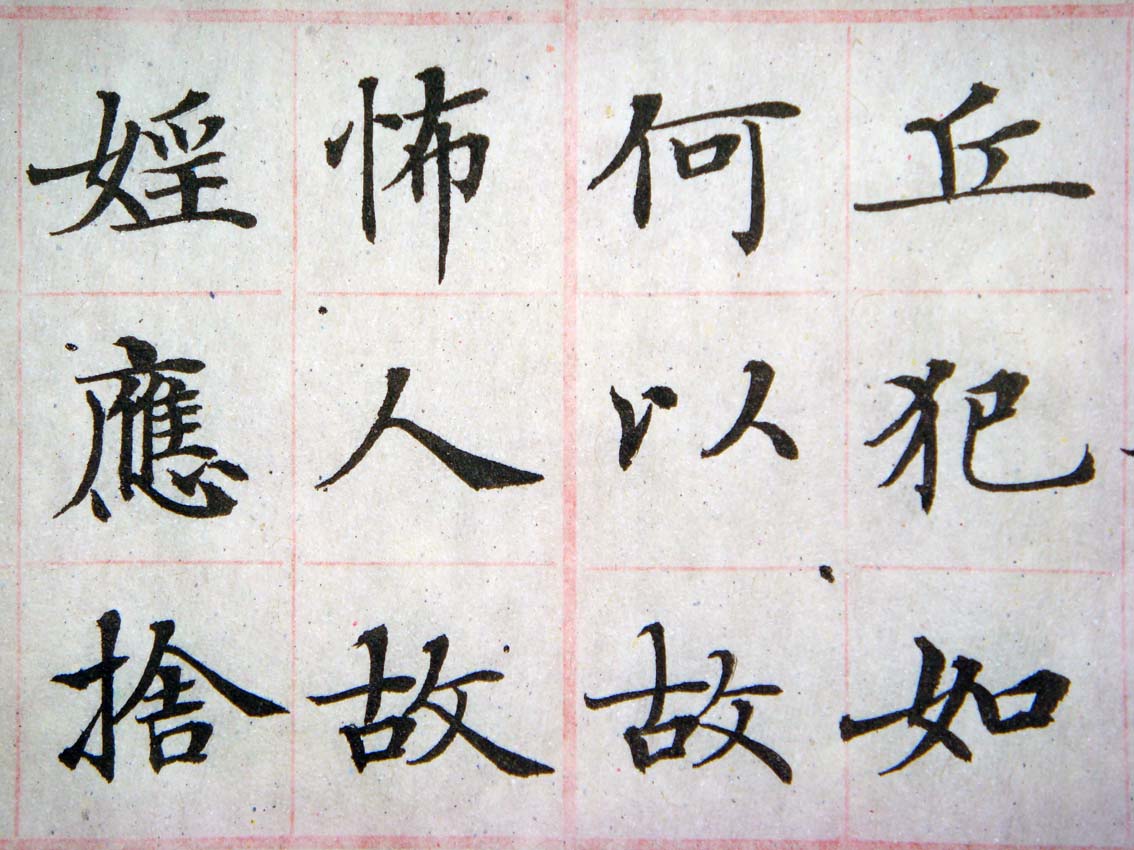 丘犯如
何以故
怖人故
婬應捨